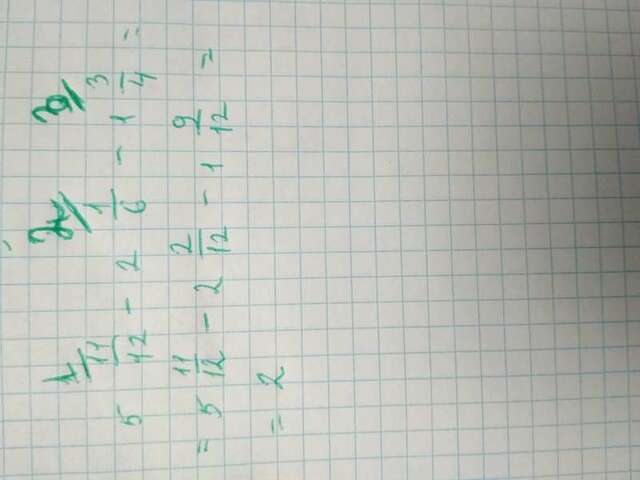 1/ 2/ 3/
5 11/12 - 2 1/6 - 1 3/4 =
= 5 11/12 - 2 2/12 - 1 9/12 =
= 2